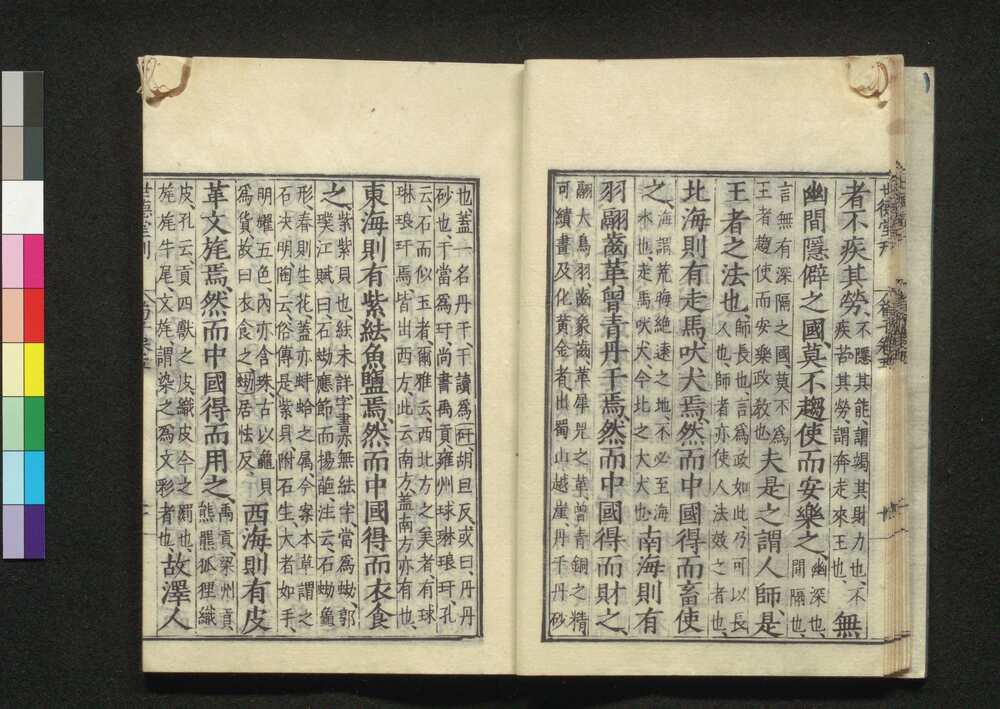 世德堂刊
荀子卷五
者不疾其勞、不隱其能、謂竭其財力也、不
疾苦其勞、謂奔走來王也、無
幽閒隱僻之國、莫不趨使而安樂之、幽深也、
閒隔也、
言無有深隔之國、莫不爲
王者趨使而安樂政教也、夫是之謂人師、是
王者之法也、師長也、言爲政如此、乃可以長
人也、師者亦使人法效之者也、
北海則有走馬吠犬焉、然而中國得而畜使
之、海謂荒晦絶遠之地、不必至海
水也、走馬吠犬、今北之大犬也、南海則有
羽翮齒革曾青丹干焉、然而中國得而財之、
翮大鳥羽、齒象齒、革犀兕之革、曾青銅之精、
可繢畫及化黄金者、出蜀山越崖、丹干丹砂
也、蓋一名丹干、干讀爲矸、胡旦反、或曰、丹丹
砂也、干當爲玕、尚書禹貢、雍州球琳琅玕、孔
云、石而似玉者、爾雅云、西北方之美者、有球
琳琅玕焉、皆出西方、此云南方、蓋南方亦有也、
東海則有紫紶魚鹽焉、然而中國得而衣食
之、紫紫貝也、紶未詳、字書亦無紶字、當爲蚴、郭
璞江賦曰、石蚴應節而揚葩、注云、石蚴龜
形、春則生花、蓋亦蚌蛤之属、今案本草謂之
石决明、陶云、俗傳是紫貝、附石生、大者如手、
明耀五色、内亦含珠、古以龜貝
爲貨、故曰衣食之、蚴居怯反、西海則有皮
革文旄焉、然而中國得而用之、禹貢、梁州貢、
熊羆狐狸織
皮、孔云、貢四獸之皮、織皮今之罽也、
旄旄牛尾、文旄謂染之爲文彩者也、故澤人
世德堂刊